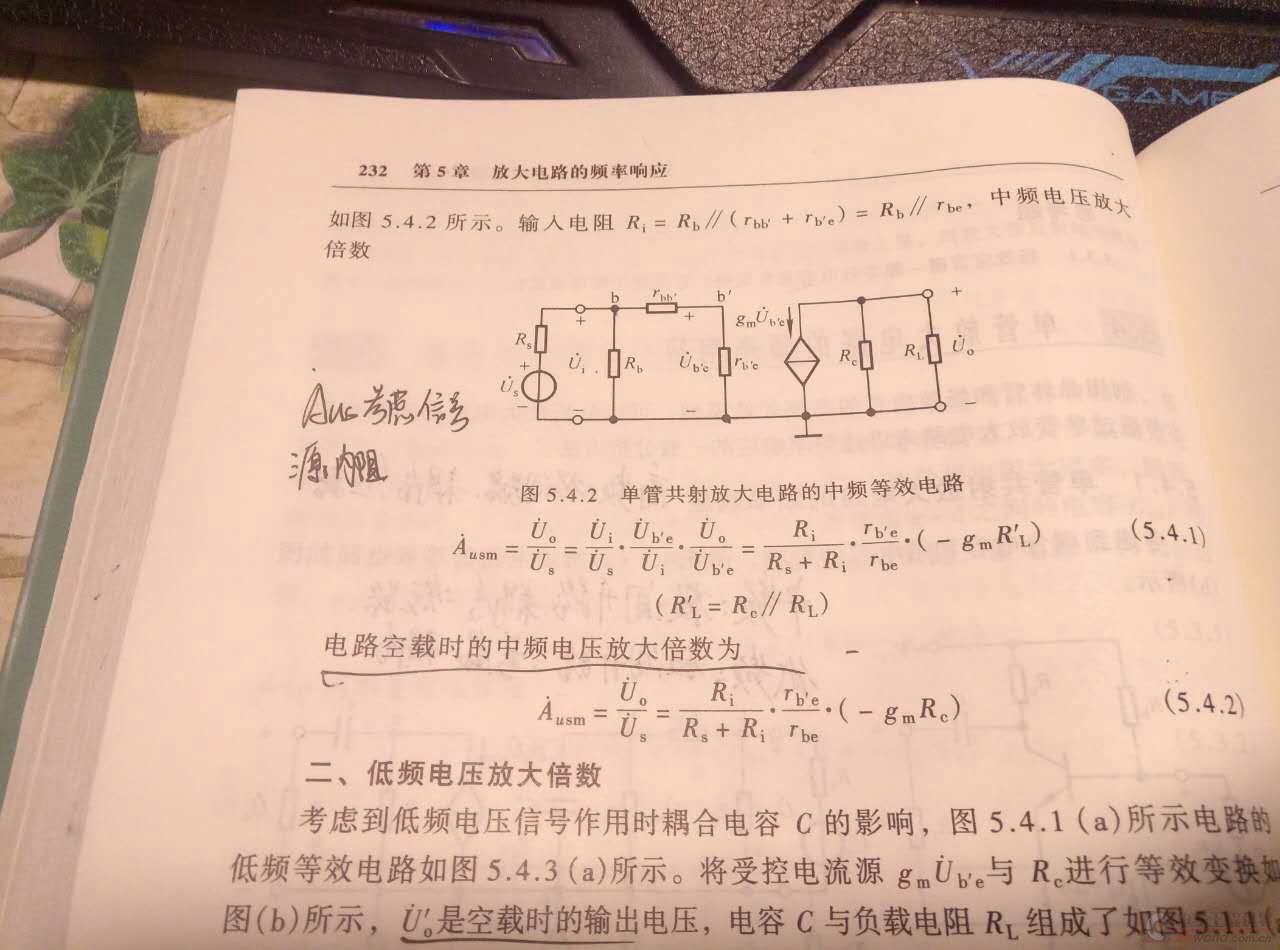 GAME
232 第5章 放大电路的频率响应
如图 5.4.2 所示。输入电阻 R_i = R_b∥(r_bb' + r_b'e) = R_b∥r_be,中频电压放大
倍数
b r_bb' b' +
R_s + U̇_i R_b + U̇_b'e r_b'e g_mU̇_b'e R_c R_L U̇_o
U̇_s + − − − −
Aus考虑信号
源内阻
图 5.4.2 单管共射放大电路的中频等效电路
Ȧ_usm = U̇_o/U̇_s = U̇_i/U̇_s · U̇_b'e/U̇_i · U̇_o/U̇_b'e = R_i/(R_s + R_i) · r_b'e/r_be · (− g_mR'_L) (5.4.1)
(R'_L = R_c∥R_L)
电路空载时的中频电压放大倍数为
Ȧ_usm = U̇_o/U̇_s = R_i/(R_s + R_i) · r_b'e/r_be · (− g_mR_c) (5.4.2)
二、低频电压放大倍数
考虑到低频电压信号作用时耦合电容 C 的影响,图 5.4.1(a)所示电路的
低频等效电路如图 5.4.3(a)所示。将受控电流源 g_mU̇_b'e与 R_c进行等效变换如
图(b)所示,U̇'_o是空载时的输出电压,电容 C 与负载电阻 R_L 组成了如图 5.1.1(